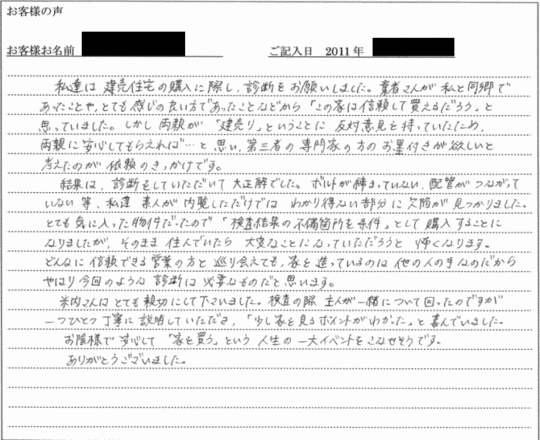 お客様の声
お客様お名前
ご記入日 2011年
私達は 建売住宅の購入に際し、診断をお願いしました。業者さんが 私と同郷で
あったことや、とても感じの良い方であったことなどから「この家は信頼して買えるだろう」と
思っていました。しかし両親が「建売り」ということに 反対意見を持っていたため、
両親に安心してもらえれば…と思い、第三者の専門家の方のお墨付きが欲しいと
考えたのが 依頼のきっかけです。
結果は、診断をしていただいて 大正解でした。ボルトが締まっていない、配管がつながって
いない等、私達 素人が内覧しただけでは わかり得ない部分に欠陥が見つかりました。
とても気に入った物件だったので「検査結果の不備箇所を条件」として購入することに
なりましたが、そのまま住んでいたら 大変なことになっていただろうと 怖くなります。
どんなに信頼できる営業の方と 巡り会えても、家を造っているのは 他の人の手なのだから
やはり今回のような 診断は必要なものだと思います。
米内さんはとても親切にして下さいました。検査の際 主人が一緒について回ったのですが
一つひとつ丁寧に説明していただき、「少し家を見るポイントがわかった」と喜んでいました。
お陰様で 安心して「家を買う」という 人生の一大イベントをこなせそうです。
ありがとうございました。